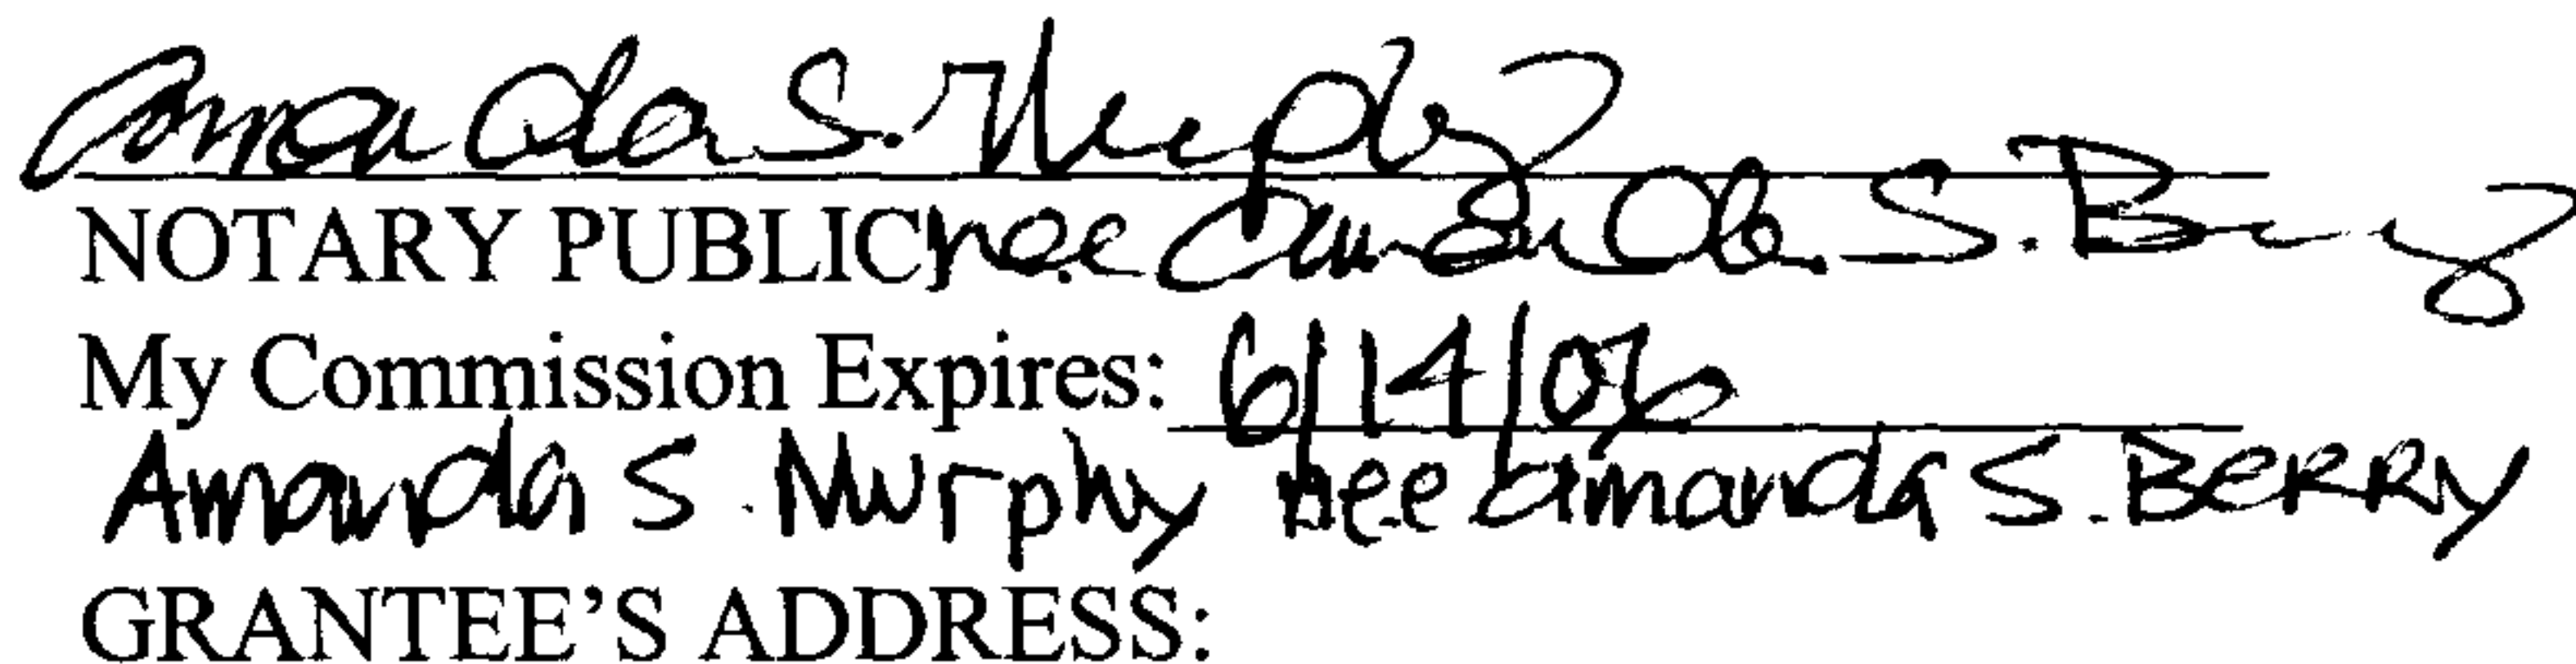 Amanda S. Murphy
NOTARY PUBLIC nee Amanda S. Berry
My Commission Expires: 6/14/06
Amanda S. Murphy nee amanda S. BERRY
GRANTEE'S ADDRESS: